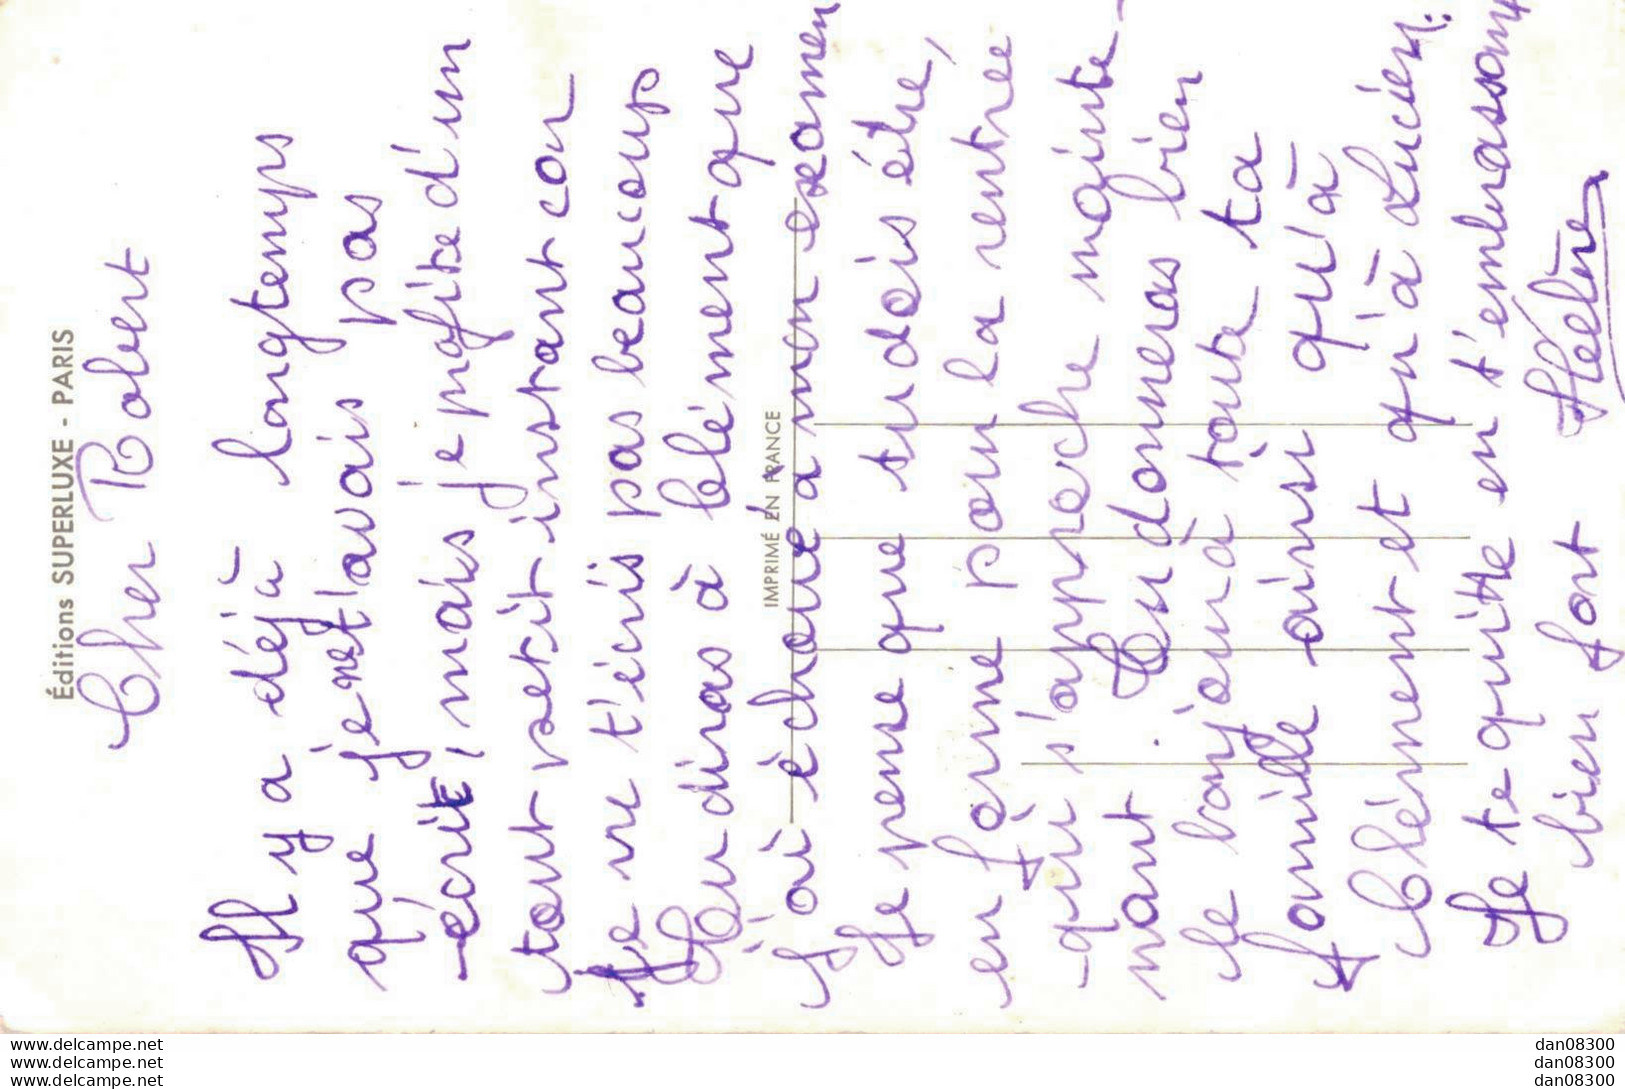 Éditions SUPERLUXE - PARIS
Cher Robert
Il y a déjà longtemps
que je ne t'avais pas
écrit, mais je profite d'un
tout petit instant car
je ne t'écris pas beaucoup
Tu diras à Clément que
j'ai échoué à mon examen
Je pense que tu dois être
en forme pour la rentrée
qui s'approche mainte-
nant. Tu donneras bien
le bonjour à toute ta
famille ainsi qu'à
Clément et qu'à Lucien.
Je te quitte en t'embrassant
bien fort Hélène
IMPRIMÉ EN FRANCE
www.delcampe.net
www.delcampe.net
www.delcampe.net
dan08300
dan08300
dan08300